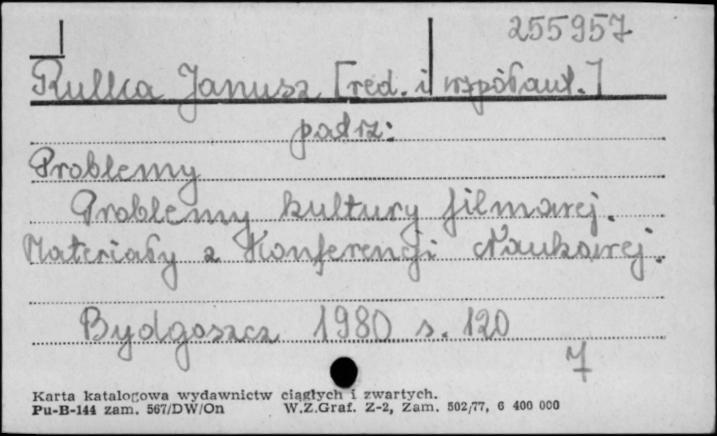 255957
Rulka Janusz [red. i współaut.]
patrz:
Problemy
Problemy kultury filmowej.
Materiały z Konferencji Naukowej.
Bydgoszcz 1980 s. 120
7
Karta katalogowa wydawnictw ciągłych i zwartych.
Pu-B-144 zam. 567/DW/On W.Z.Graf. Z-2, Zam. 502/77, 6 400 000